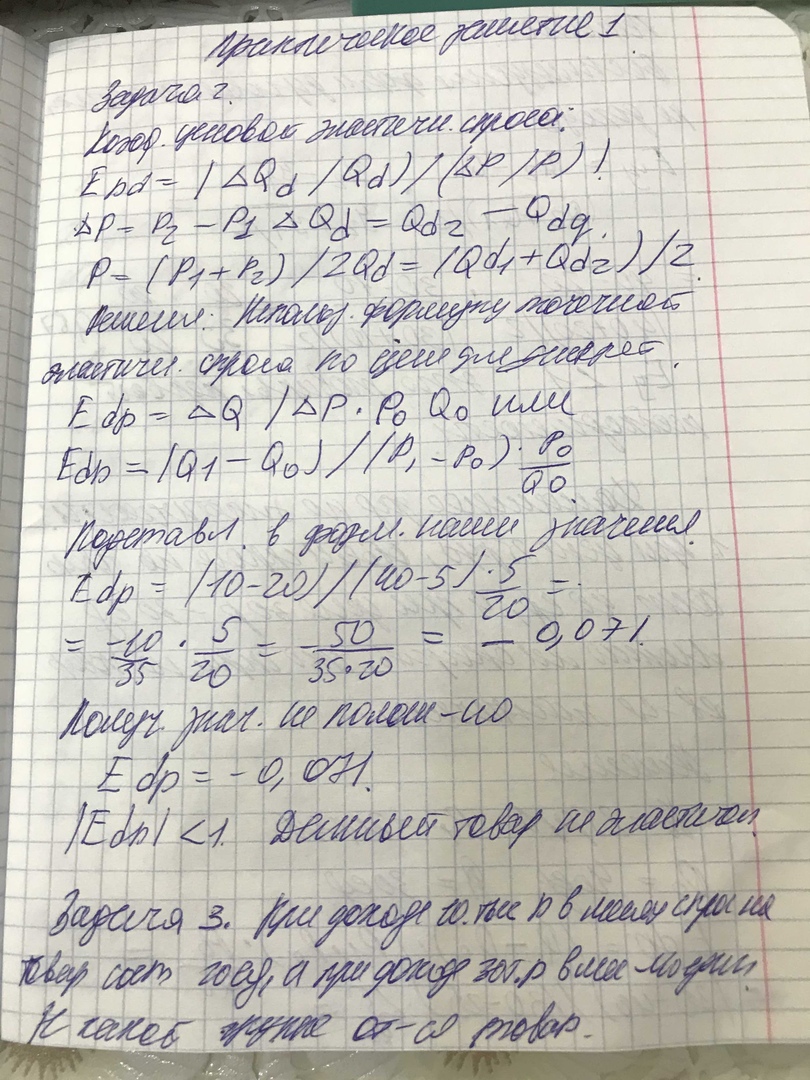 Практическое занятие 1
Задача 2.
Коэф. ценовой эластичн. спроса:
Epd = (ΔQd/Qd)/(ΔP/P)!
ΔP = P2 - P1 ΔQd = Qd2 - Qdq.
P = (P1+P2)/2Qd = (Qd1+Qd2)/2.
Решение: Использ. формулу точечной
эластичн. спроса по цене для дискрет.
Edp = ΔQ/ΔP·P0 Q0 или
Edp = (Q1 - Q0)/(P1 - P0)·P0/Q0
Подставл. в форм. наши значения.
Edp = (10-20)/(40-5)·5/20 =
= -10/35 · 5/20 = -50/35·20 = - 0,071.
Получ. знач. не полож-но
Edp = - 0,071.
|Edp| < 1. Данный товар не эластичен.
Задача 3. При доходе 20.тыс р в месяц спрос на
товар сост ед, а при доходе 30т.р в мес
К какой группе от-ся товар.